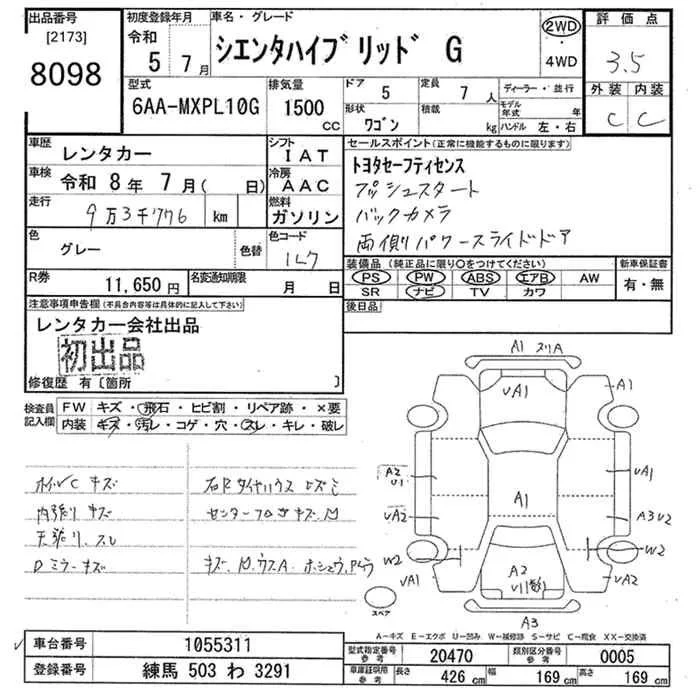 出品番号 [2173] 8098
初度登録年月 令和 5年 7月
車名・グレード シエンタハイブリッド G
2WD・4WD
評価点 3.5
外装 C 内装 C
型式 6AA-MXPL10G
排気量 1500 cc
ドア 5
定員 7 人
形状 ワゴン
積載 kg
ディーラー・並行
モデル年式 年
ハンドル 左・右
車歴 レンタカー
シフト IAT
車検 令和 8年 7月( 日)
冷房 AAC
走行 9万3千776 km
燃料 ガソリン
色 グレー
色替
色コード 1L7
R券 11,650円
名変通知期限 月 日
セールスポイント(正常に機能するものに限ります)
トヨタセーフティセンス
プッシュスタート
バックカメラ
両側パワースライドドア
装備品(純正品に限り○をつけてください)
PS PW ABS エアB AW
SR ナビ TV カワ
新車保証書 有・無
後日品
注意事項申告欄(不具合内容等は具体的に記入して下さい)
レンタカー会社出品
初出品
修復歴 有〔箇所 〕
検査員記入欄
FW キズ・飛石・ヒビ割・リペア跡・×要
内装 キズ・汚レ・コゲ・穴・スレ・キレ・破レ
ホイルC キズ
内張り キズ
天張り、スレ
Dミラーキズ
A1 スリA
UA1
A1
A2
U1
UA1
A1
UA2
A3U2
W2
W2
UA1
UA2
A2
A3
スペア
A−キズ E−エクボ U−凹み W−補修跡 S−サビ C−腐食 XX−交換済
車台番号 1055311
登録番号 練馬 503 わ 3291
型式指定番号 参考 20470
類別区分番号 参考 0005
車庫証明用 参考 長さ 426 cm 幅 169 cm 高さ 169 cm